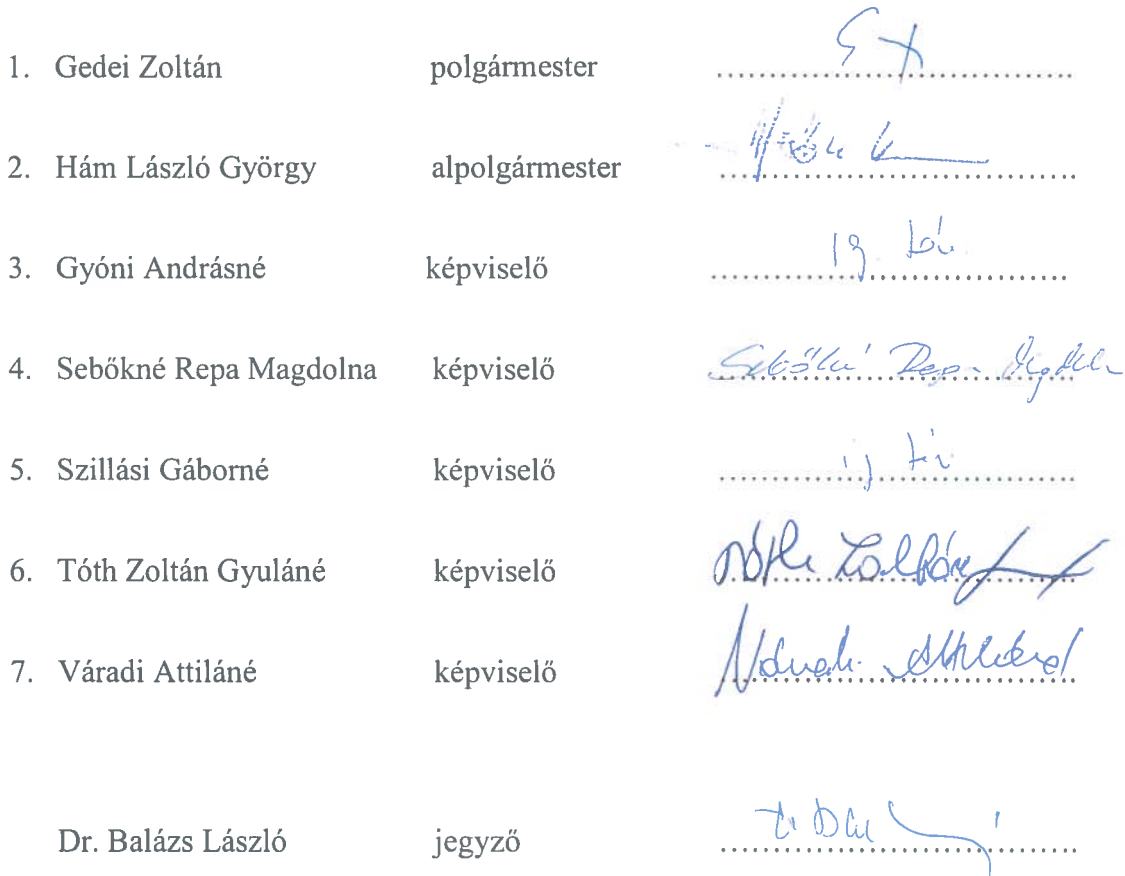 1. Gedei Zoltán polgármester
2. Hám László György alpolgármester
3. Gyóni Andrásné képviselő
4. Sebőkné Repa Magdolna képviselő Sebőkné Repa Magdolna
5. Szillási Gáborné képviselő
6. Tóth Zoltán Gyuláné képviselő Tóth Zoltán
7. Váradi Attiláné képviselő Váradi Attiláné
Dr. Balázs László jegyző